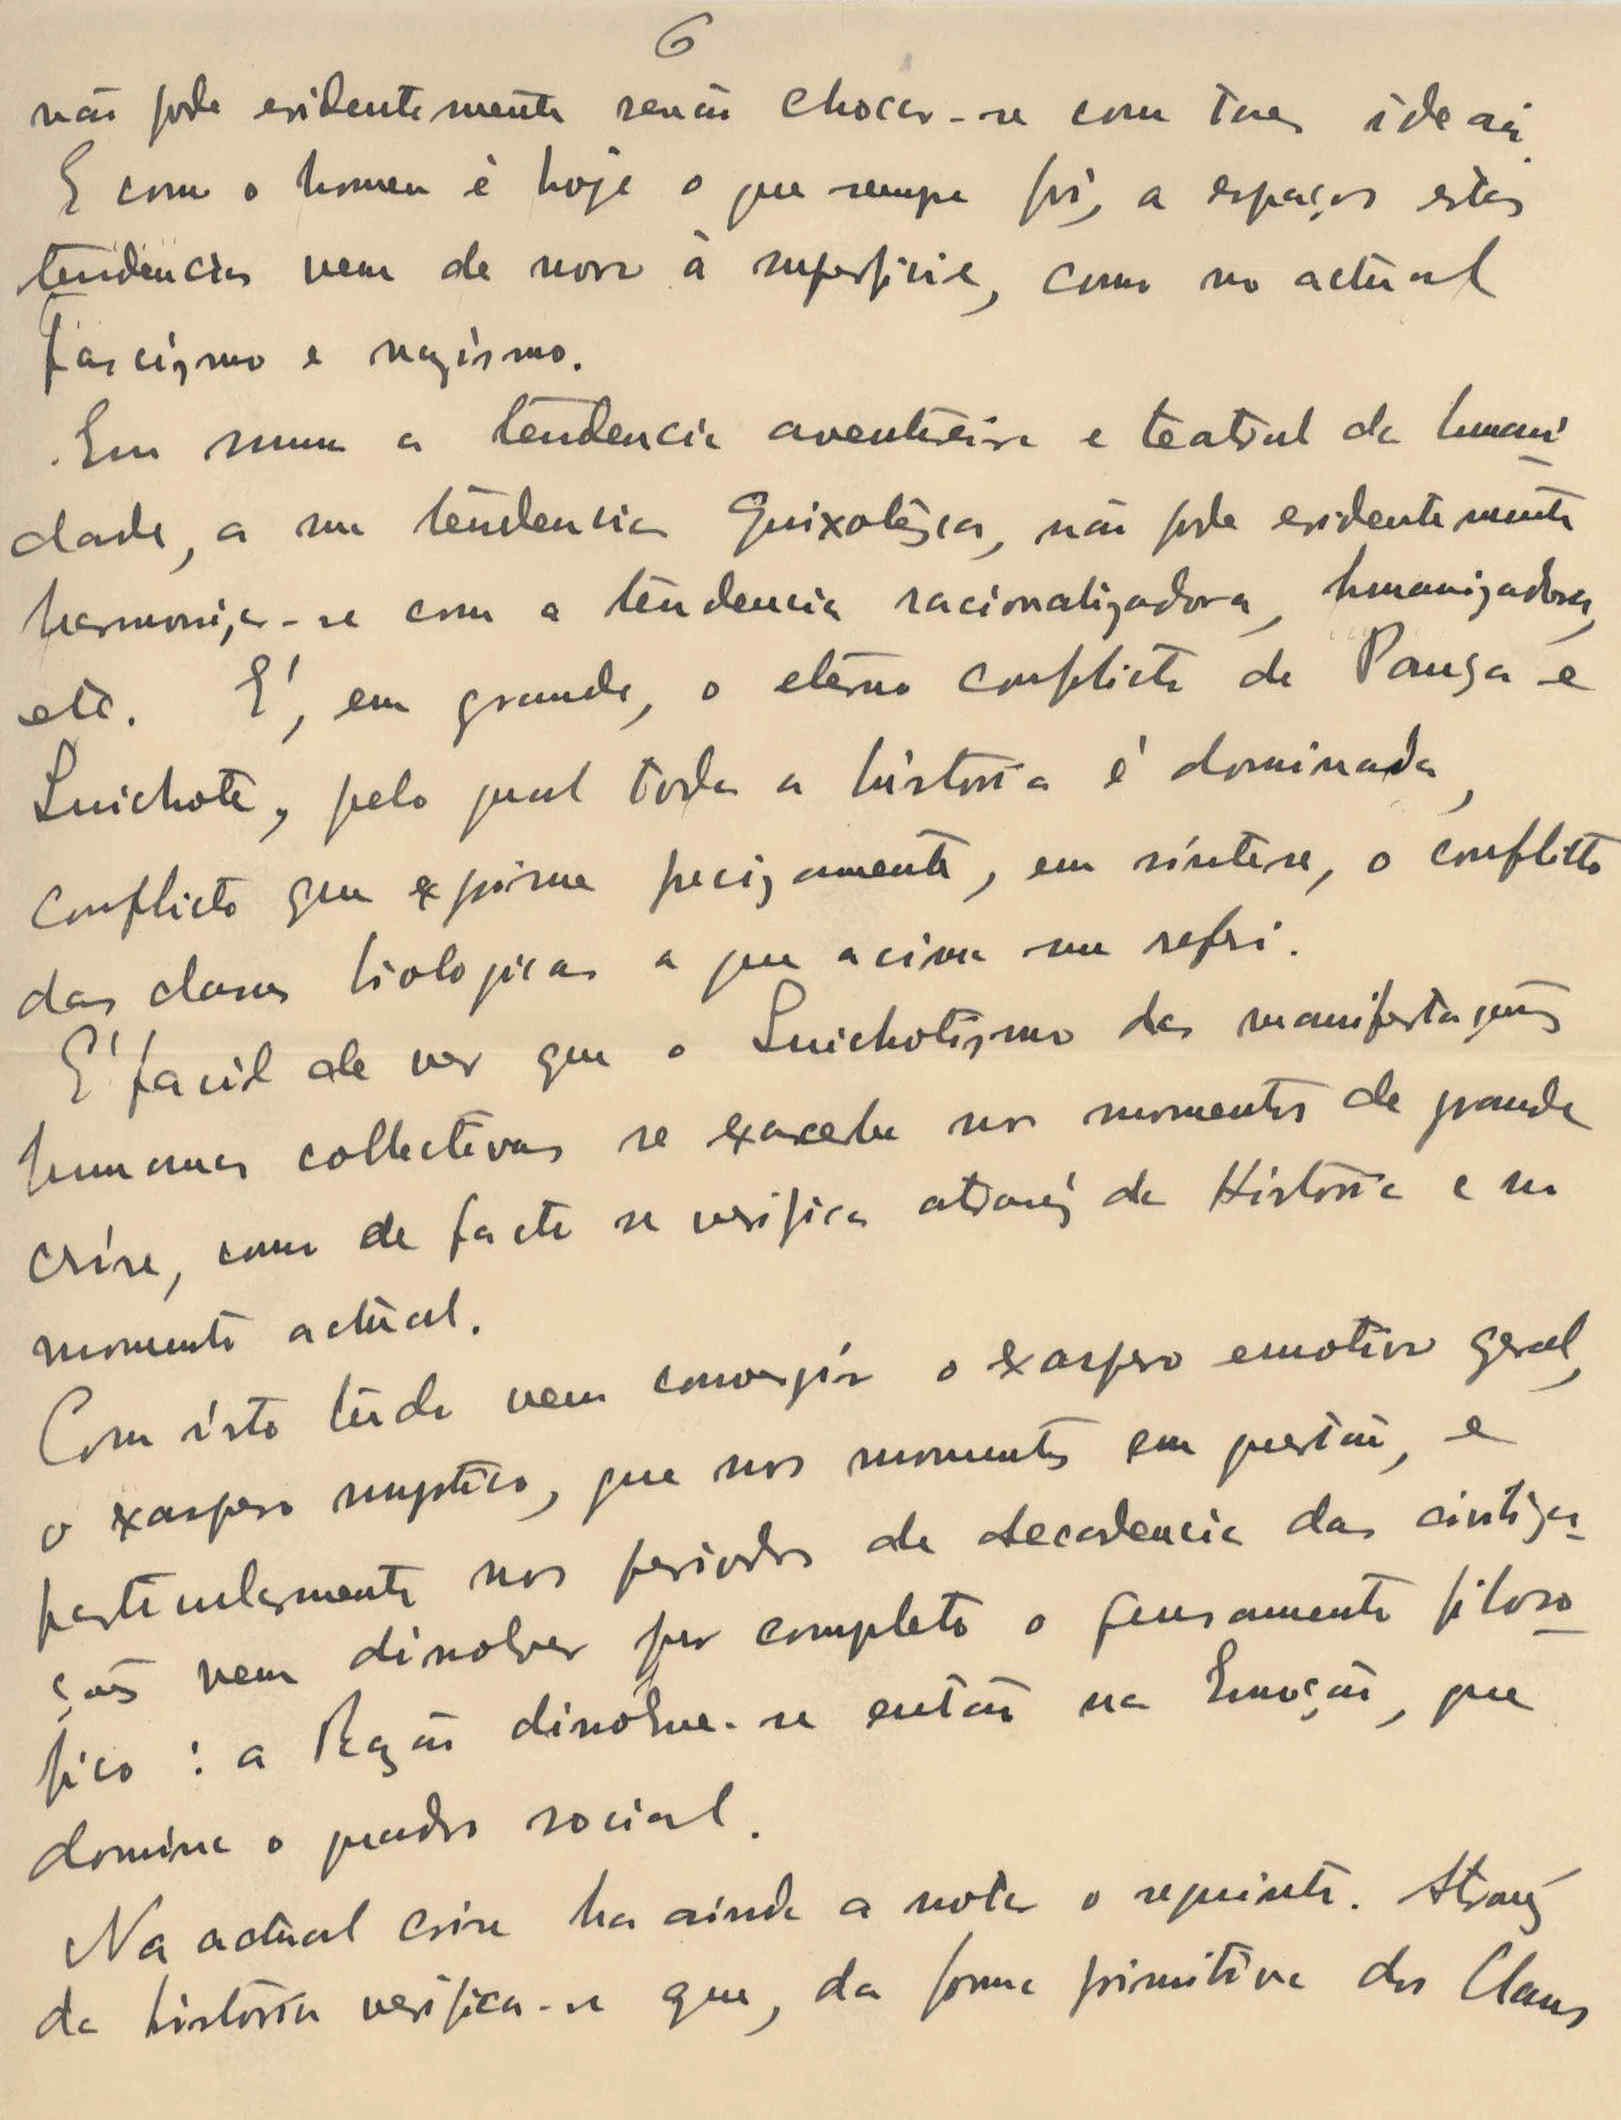 6
não pode evidentemente senão chocar-se com taes ideais.
E como o homem é hoje o que sempre foi, a espaços estas
tendencias vem de novo à superficie, como no actual
Fascismo e nazismo.
Em suma a tendencia aventureira e teatral da humani
dade, a sua tendencia Quixotesca, não pode evidentemente
harmonizar-se com a tendencia racionalizadora, humanizadora,
etc. É, em grande, o eterno conflicto de Pança e
Quichote, pelo qual toda a historia é dominada,
conflicto que exprime precizamente, em síntese, o conflicto
das classes biologicas a que acima me referi.
É facil de ver que o Quichotismo das manifestações
humanas collectivas se exacerba nos momentos de grande
crise, como de facto se verifica através da Historia e no
momento actual.
Com isto tudo vem convergir o exaspero emotivo geral,
o exaspero mystico, que nos momentos em questão, e
particularmente nos periodos de decadencia das civiliza-
ções vem dissolver por completo o pensamento filoso
fico: a Razão dissolve-se então na Emoção, que
domina o quadro social.
Na actual crise ha ainda a notar o seguinte. Através
da historia verifica-se que, da forma primitiva dos Clans